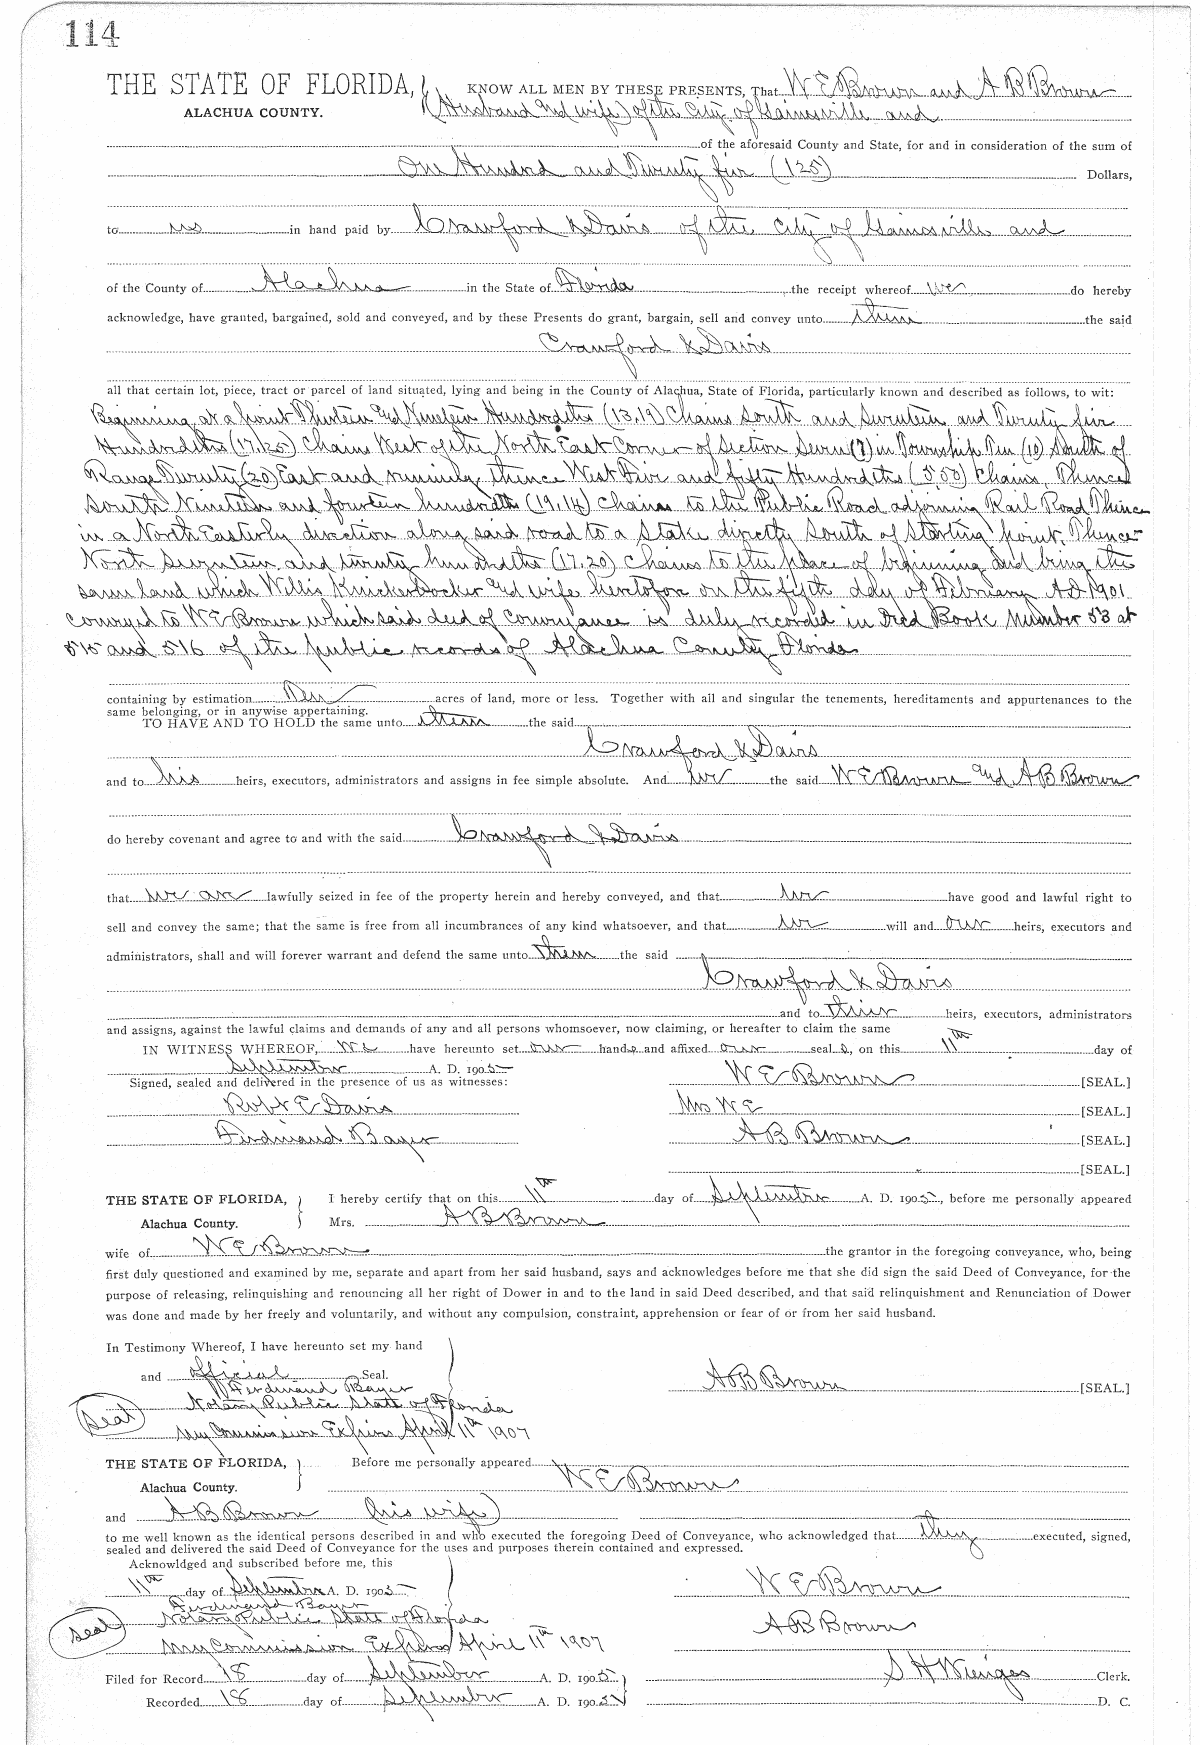 114
THE STATE OF FLORIDA, KNOW ALL MEN BY THESE PRESENTS, That W E Brown and A B Brown
ALACHUA COUNTY. (Husband and wife) of the City of Gainesville and
of the aforesaid County and State, for and in consideration of the sum of
One Hundred and Twenty five (125) Dollars,
to us in hand paid by Crawford & Davis of the City of Gainesville and
of the County of Alachua in the State of Florida the receipt whereof we do hereby
acknowledge, have granted, bargained, sold and conveyed, and by these Presents do grant, bargain, sell and convey unto them the said
Crawford & Davis
all that certain lot, piece, tract or parcel of land situated, lying and being in the County of Alachua, State of Florida, particularly known and described as follows, to wit:
Beginning at a point Thirteen and Nineteen Hundredths (13.19) Chains South and Seventeen and Twenty five
Hundredths (17.25) Chains West of the North East Corner of Section Seven (7) in Township Ten (10) South of
Range Twenty (20) East and running thence West Five and fifty Hundredths (5.50) Chains, Thence
South Nineteen and fourteen hundredths (19.14) Chains to the Public Road adjoining Rail Road Thence
in a North Easterly direction along said road to a Stake directly South of Starting point, Thence
North Seventeen and twenty hundredths (17.20) Chains to the place of beginning and being the
same land which Willis Knickerbocker and wife heretofore on the fifth day of February A.D. 1901
conveyed to W E Brown which said deed of conveyance is duly recorded in Deed Book Number 53 at
515 and 516 of the public records of Alachua County Florida
containing by estimation Ten acres of land, more or less. Together with all and singular the tenements, hereditaments and appurtenances to the
same belonging, or in anywise appertaining.
TO HAVE AND TO HOLD the same unto them the said
Crawford & Davis
and to his heirs, executors, administrators and assigns in fee simple absolute. And we the said W E Brown and A B Brown
do hereby covenant and agree to and with the said Crawford & Davis
that we are lawfully seized in fee of the property herein and hereby conveyed, and that we have good and lawful right to
sell and convey the same; that the same is free from all incumbrances of any kind whatsoever, and that we will and our heirs, executors and
administrators, shall and will forever warrant and defend the same unto them the said
Crawford & Davis
and to their heirs, executors, administrators
and assigns, against the lawful claims and demands of any and all persons whomsoever, now claiming, or hereafter to claim the same
IN WITNESS WHEREOF, We have hereunto set our hands and affixed our seals, on this 11th day of
September A. D. 1905
Signed, sealed and delivered in the presence of us as witnesses: W E Brown [SEAL.]
Robt E Davis Mrs W E [SEAL.]
Ferdinand Bayer A B Brown [SEAL.]
[SEAL.]
THE STATE OF FLORIDA, I hereby certify that on this 11th day of September A. D. 1905, before me personally appeared
Alachua County. Mrs. A B Brown
wife of W E Brown the grantor in the foregoing conveyance, who, being
first duly questioned and examined by me, separate and apart from her said husband, says and acknowledges before me that she did sign the said Deed of Conveyance, for the
purpose of releasing, relinquishing and renouncing all her right of Dower in and to the land in said Deed described, and that said relinquishment and Renunciation of Dower
was done and made by her freely and voluntarily, and without any compulsion, constraint, apprehension or fear of or from her said husband.
In Testimony Whereof, I have hereunto set my hand
and official Seal. A B Brown [SEAL.]
Ferdinand Bayer
Seal Notary Public State of Florida
My Commission Expires April 11th 1907
THE STATE OF FLORIDA, Before me personally appeared W E Brown
Alachua County.
and A B Brown (his wife)
to me well known as the identical persons described in and who executed the foregoing Deed of Conveyance, who acknowledged that they executed, signed,
sealed and delivered the said Deed of Conveyance for the uses and purposes therein contained and expressed.
Acknowldged and subscribed before me, this
11th day of September A. D. 1905 W E Brown
Ferdinand Bayer
Seal Notary Public State of Florida A B Brown
My Commission Expires April 11th 1907
Filed for Record 18 day of September A. D. 1905 S H Wienges Clerk.
Recorded 18 day of September A. D. 1905 D. C.